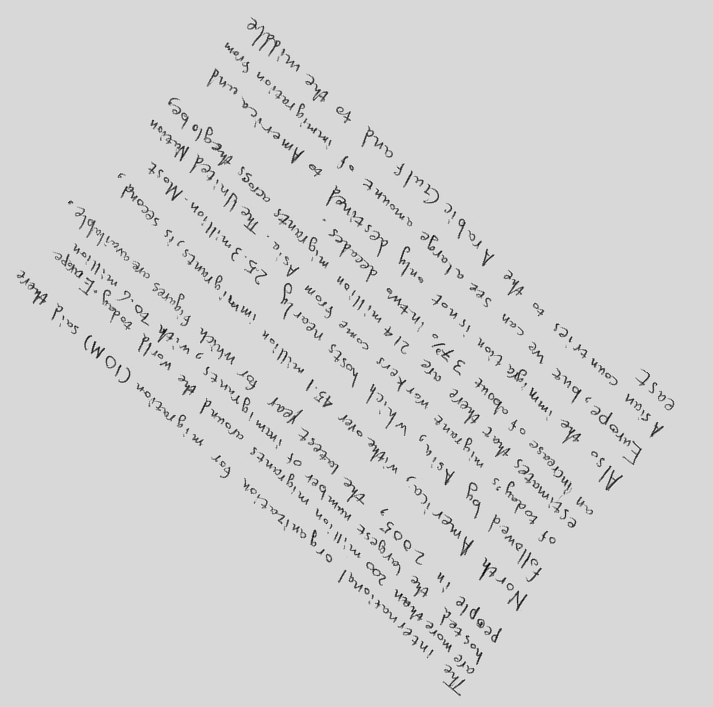 The international organization for migration (IOM) said there
are more than 200 million migrants around the world today. Europe
hosted the largest number of immigrants, with 70.6 million
people in 2005, the latest year for which figures are available.
North America, withe over 45.1 million immigrants, is second,
followed by Asia, which hosts nearly 25.3 million. Most
of today,s migrant workers come from Asia. The United Nation
estimates that there are 214 million migrants across the globe,
an increase of about 37% in two decades.
Also the immigation is not only destined to America and
Europe, but we can see a large amount of immigration from
Asian countries to the Arabic Gulf and to the middle
east